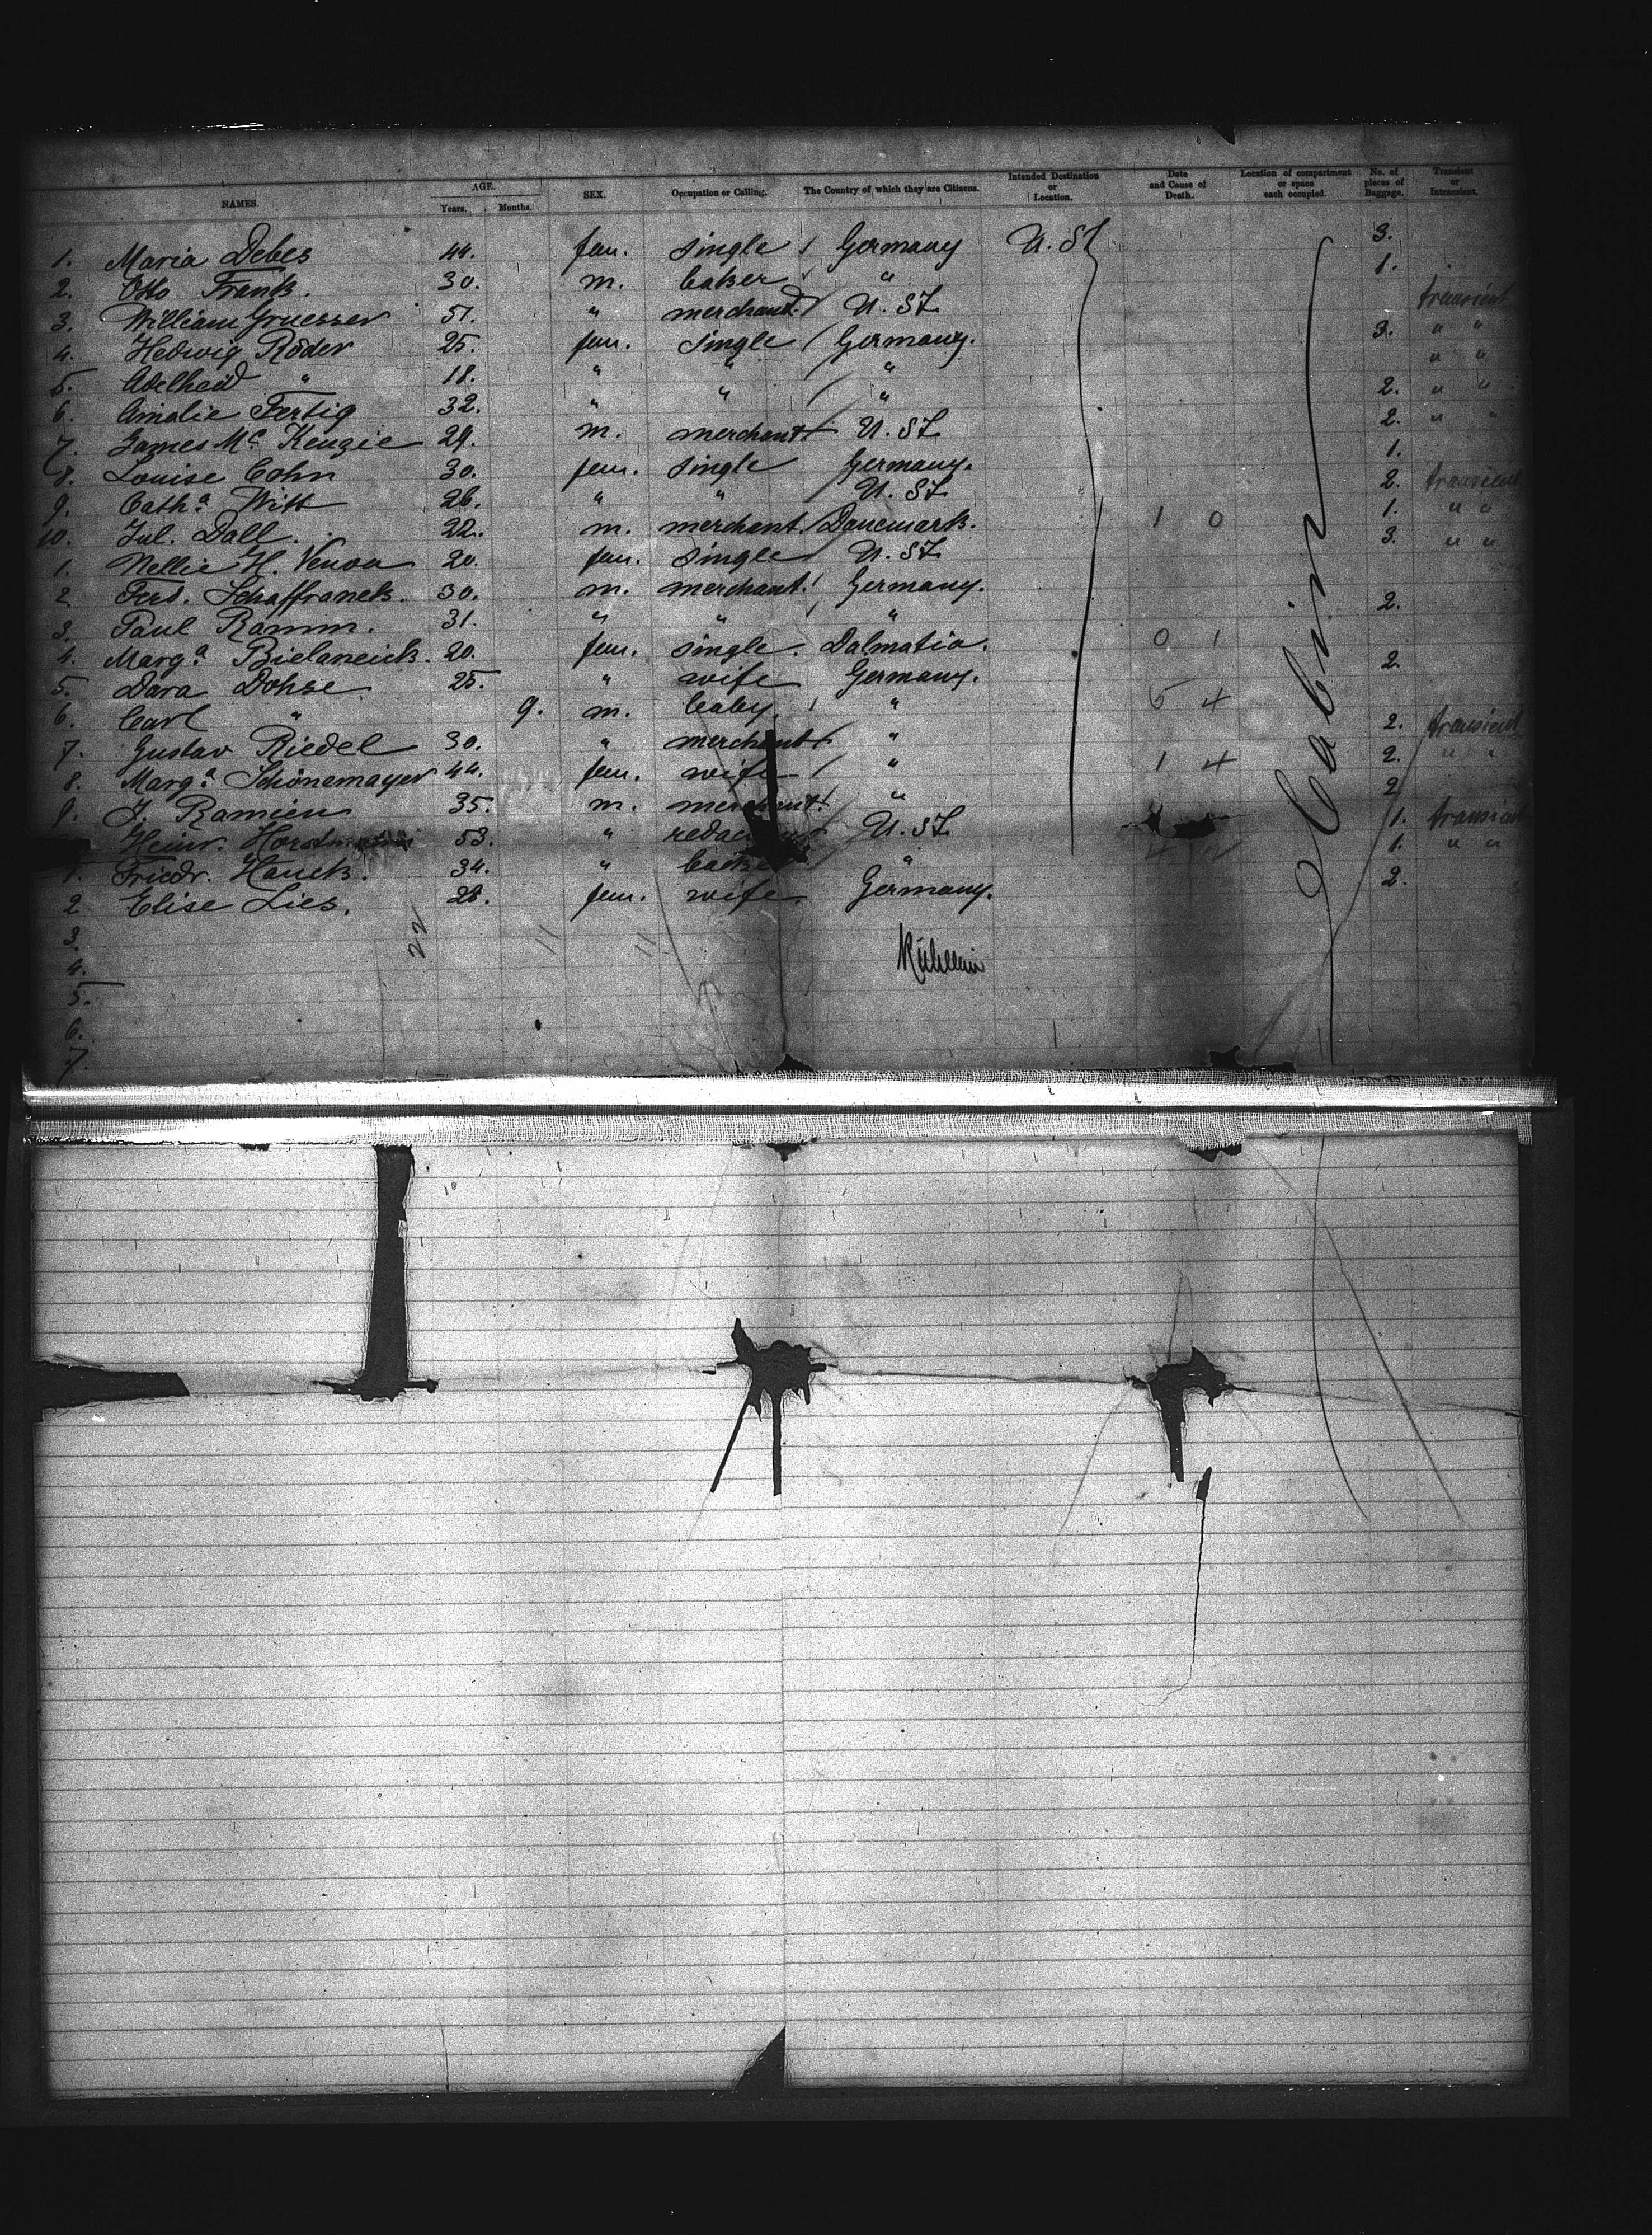 NAMES. AGE. Years. Months. SEX. Occupation or Calling. The Country of which they are Citizens. Intended Destination or Location. Date and Cause of Death. Location of compartment or space each occupied. No. of pieces of Baggage. Transient or Intransient.
1. Maria Debes 44. fem. single Germany U. St 3.
2. Otto Frank. 30. m. baker " 1.
3. William Gruesser 51. " merchant. U. St. transient
4. Hedwig Röder 25. fem. single Germany. 3. " "
5. Adelheid " 18. " " " " "
6. Amalie Fertig 32. " " " 2. " "
7. James Mc Kenzie 29. m. merchant U. St. 2. " "
8. Louise Cohn 30. fem. single Germany. 1.
9. Cath.a Witt 26. " " U. St. 2. transient
10. Jul. Dall. 22. m. merchant. Danemark. 1 0 1. " "
1. Nellie H. 20. fem. single U. St. 3. " "
2 Ferd. Schaffranek. 30. m. merchant. Germany.
3. Paul Ramm. 31. " " " 2.
4. Marg.a Bielaneick. 20. fem. single. Dalmatia. 0 1
5. Dora Dohse 25. " wife Germany. 2.
6. Carl " 9. m. baby. " 5 4
7. Gustav Riedel 30. " merchant " 2. transient
8. Marg.a Schönemayer 44. fem. wife " 1 4 2. " "
9. J. Ramien 35. m. merchant. " 2
Heinr. 53. " U. St. 1. transient
1. Friedr. Hauck. 34. " baker " 1. " "
2 Elise Lies. 28. fem. wife. Germany. 2.
Cabin
3. 22 11 11
4.
5.
6.
7.